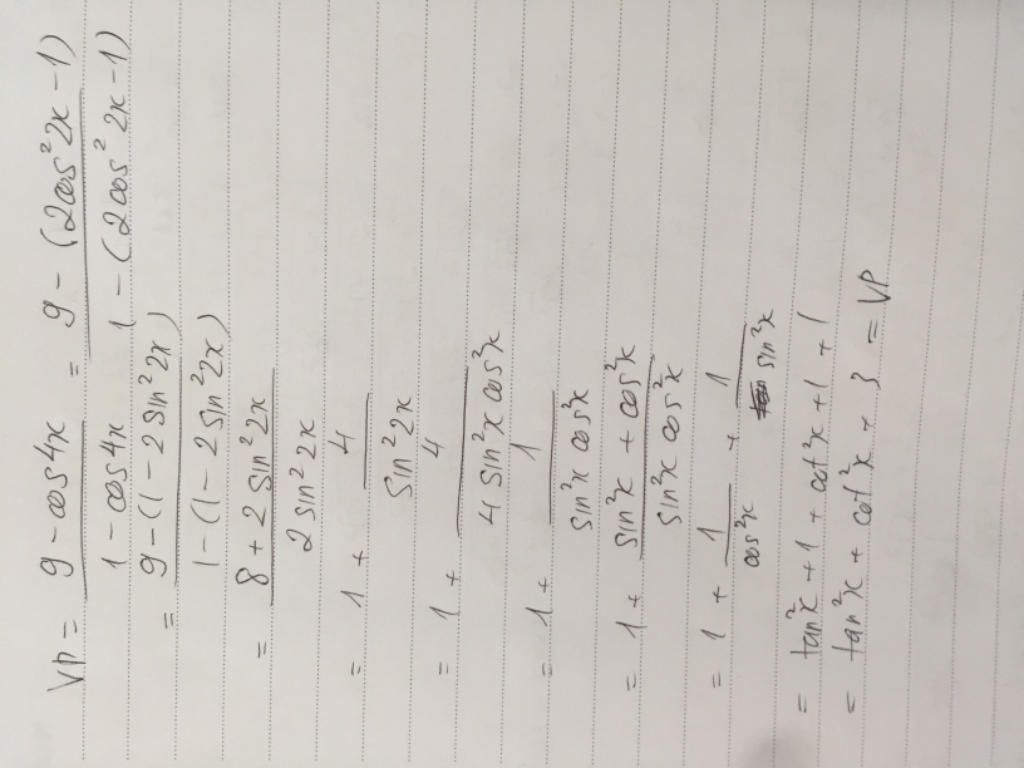 VP = (9 - cos4x)/(1 - cos4x) = (9 - (2cos²2x - 1))/(1 - (2cos²2x - 1))
= (9 - (1 - 2sin²2x))/(1 - (1 - 2sin²2x))
= (8 + 2sin²2x)/(2sin²2x)
= 1 + 4/(sin²2x)
= 1 + 4/(4sin²x cos²x)
= 1 + 1/(sin²x cos²x)
= 1 + (sin²x + cos²x)/(sin²x cos²x)
= 1 + 1/(cos²x) + 1/(sin²x)
= tan²x + 1 + cot²x + 1 + 1
= tan²x + cot²x + 3 = VP